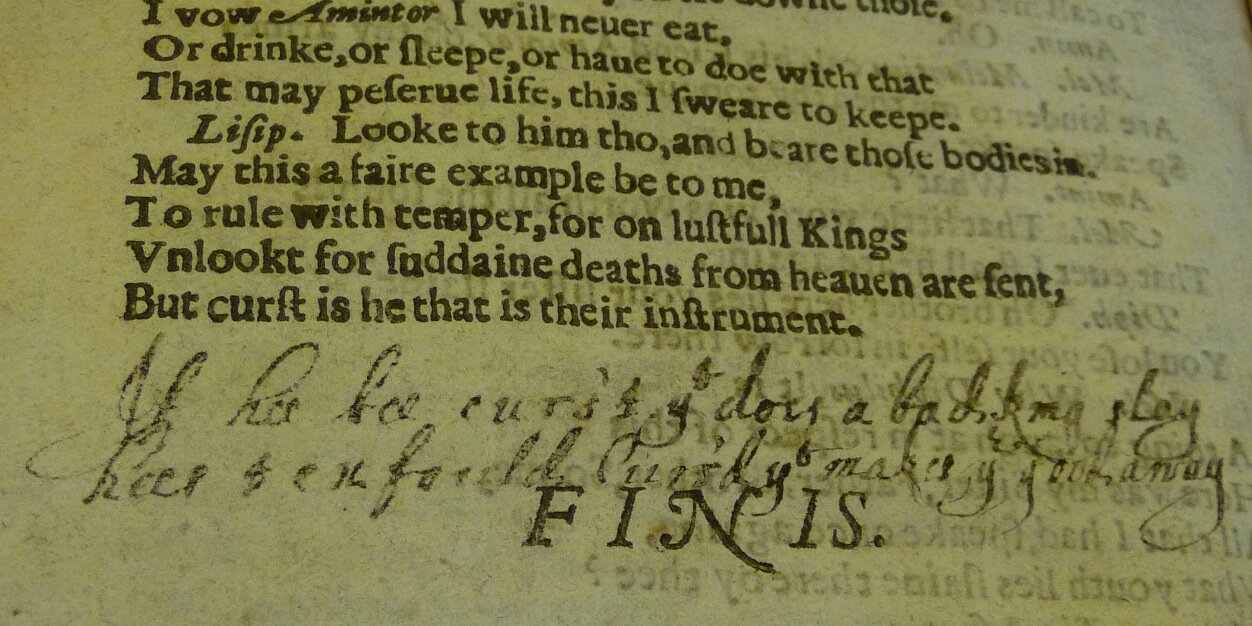 I vow Amintor I will neuer eat,
Or drinke, or ſleepe, or haue to doe with that
That may peſerue life, this I ſweare to keepe.
Liſip. Looke to him tho, and beare thoſe bodies in.
May this a faire example be to me,
To rule with temper, for on luſtfull Kings
Vnlookt for ſuddaine deaths from heauen are ſent,
But curſt is he that is their inſtrument.
If hee bee curs't, yt doth a bad king slay
hees tenfould Curs'd yt makes ye good away
FINIS.